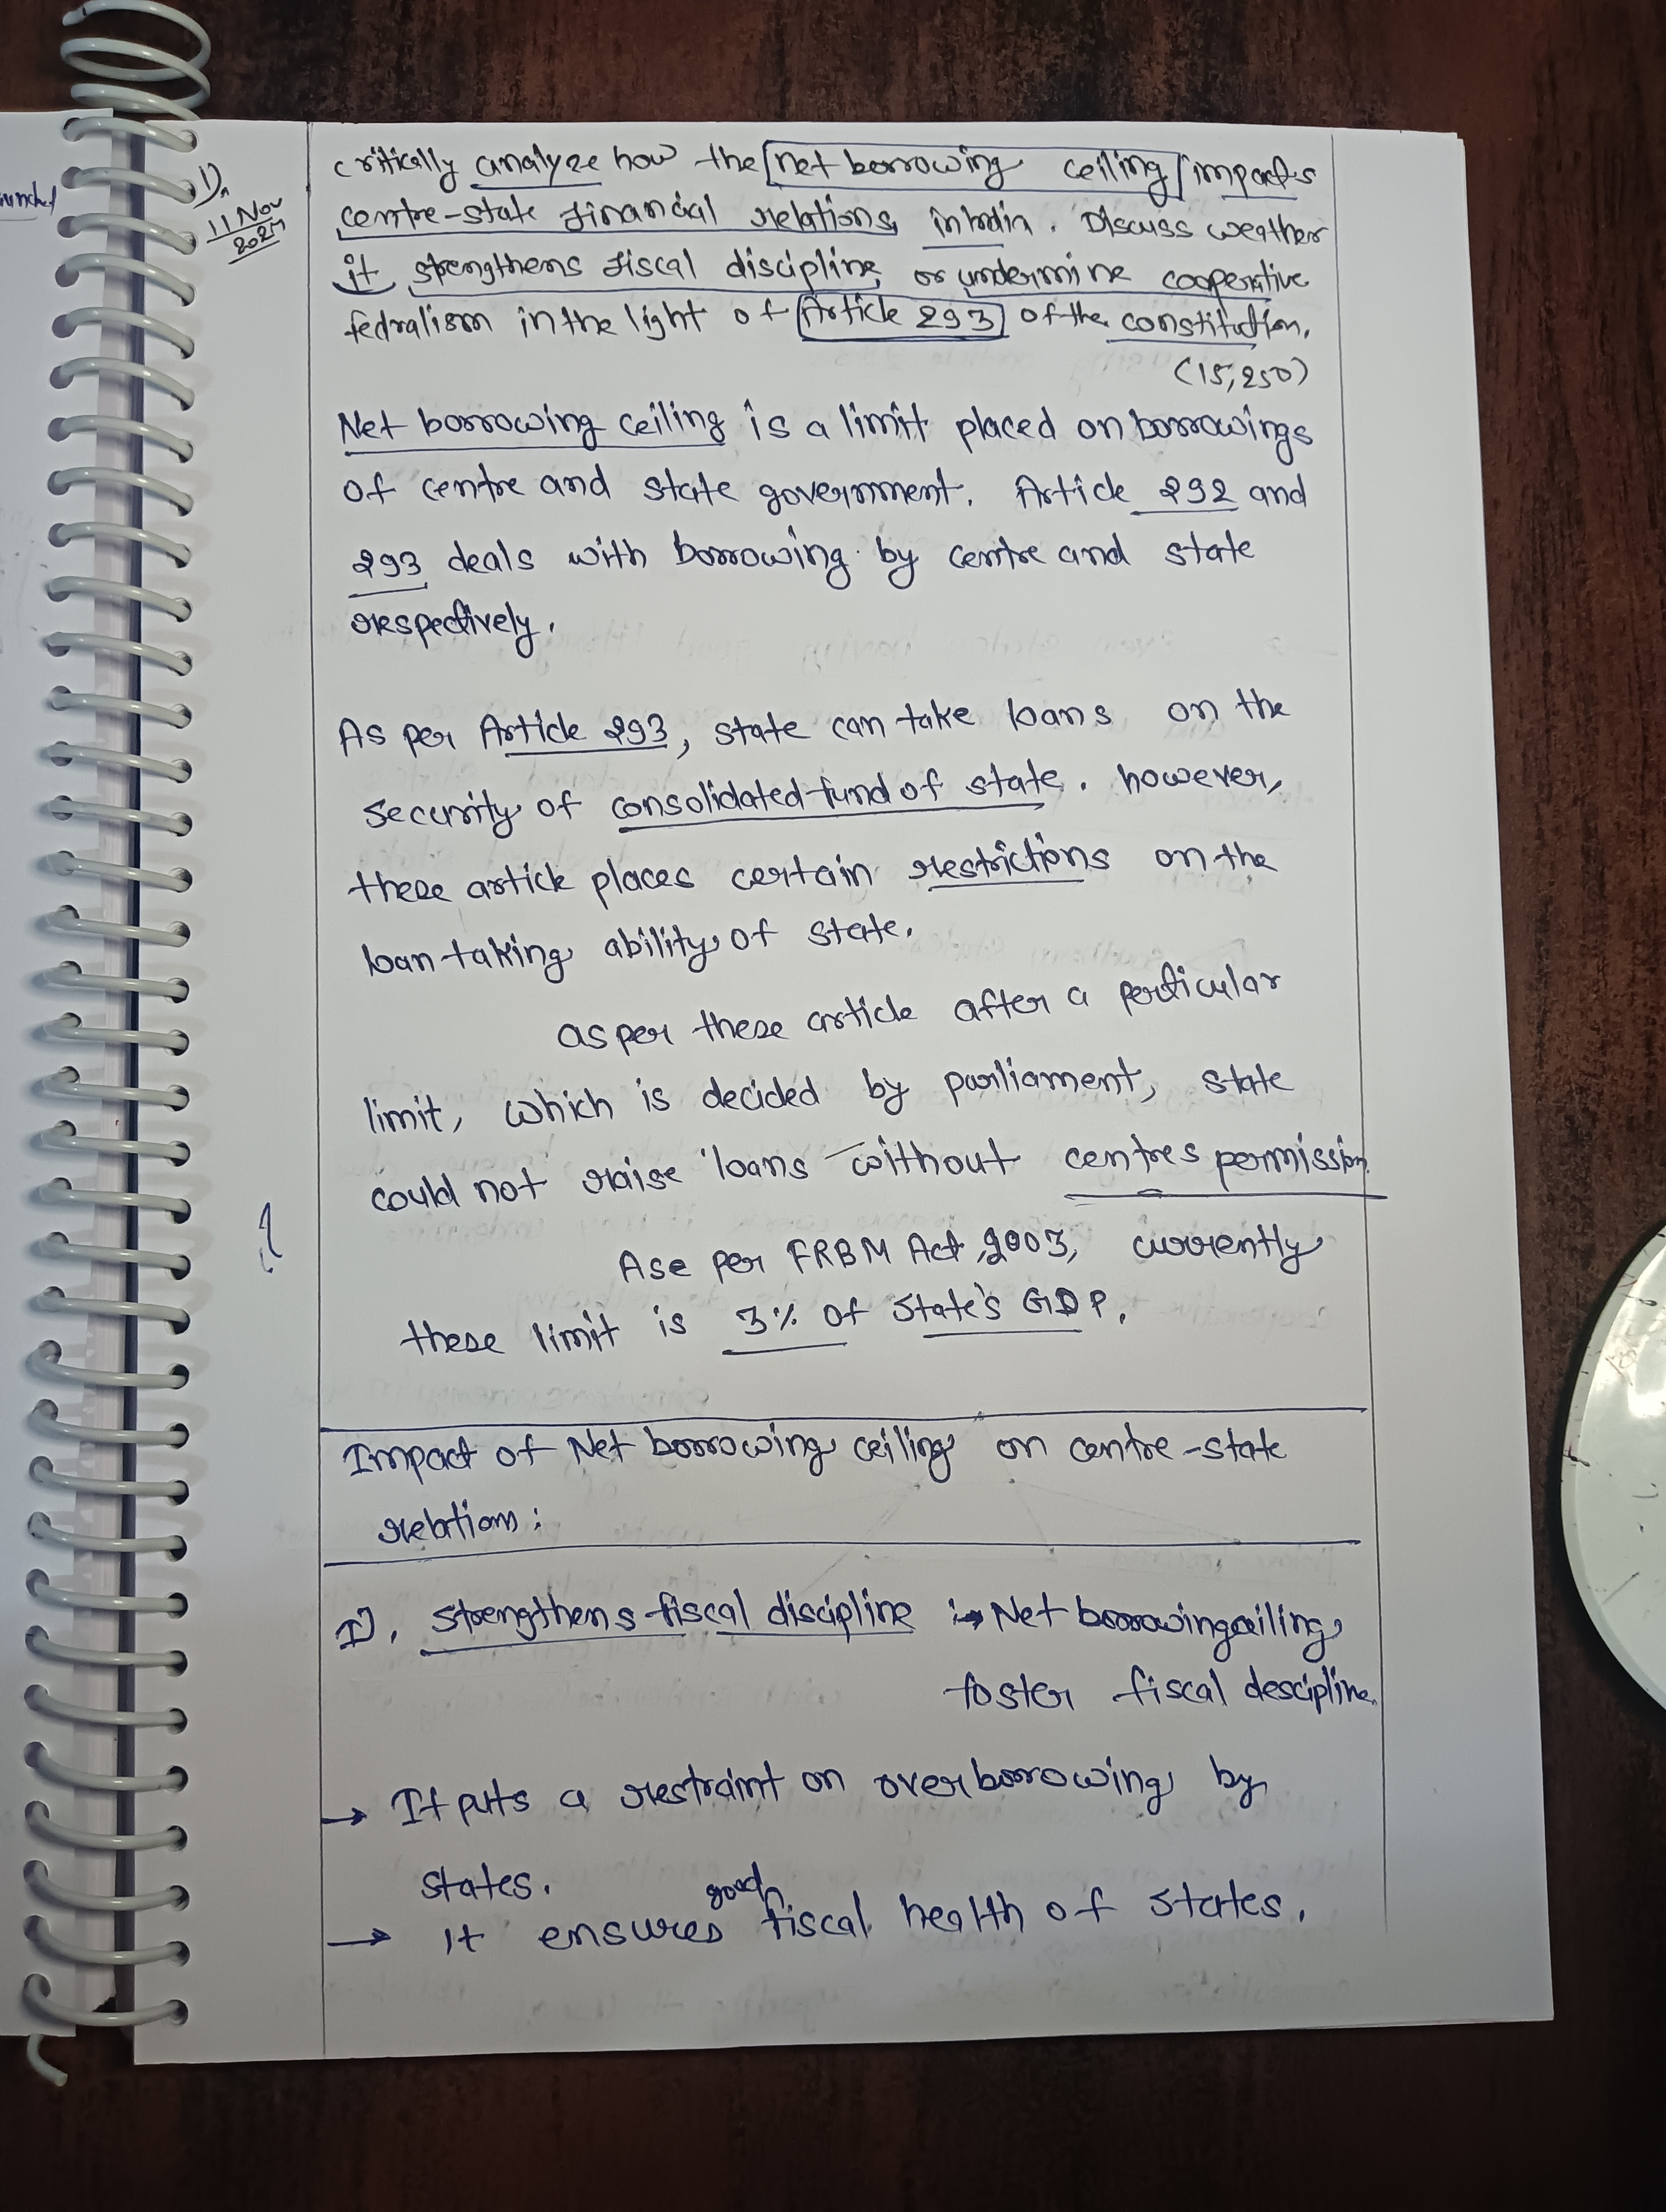 1).
11 Nov
2024
critically analyze how the net borrowing ceiling impacts
centre-state financial relations in India. Discuss weather
it strengthens fiscal discipline or undermine cooperative
fedralism in the light of Article 293 of the constitution.
(15,250)
Net borrowing ceiling is a limit placed on borrowings
of centre and state government. Article 292 and
293 deals with borrowing by centre and state
respectively.
As per Article 293, state can take loans on the
security of consolidated fund of state. however,
these article places certain restrictions on the
loan taking ability of state.
as per these article after a perticular
limit, which is decided by parliament, state
could not raise loans without centres permission
Ase per FRBM Act, 2003, currently
these limit is 3% of state's GDP.
Impact of Net borrowing ceiling on centre-state
relations:
1). strengthens fiscal discipline :→ Net borrowing ceiling
foster fiscal descipline.
→ It puts a restraint on over borrowing by
states.
→ it ensures good fiscal health of states.